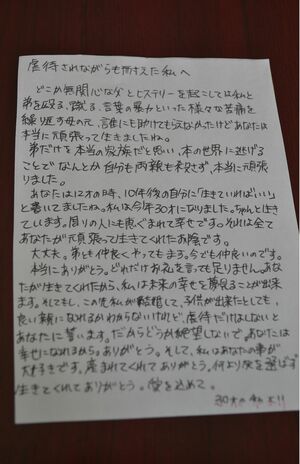 虐待されながらも耐えた私へ
どこか無関心な父とヒステリーを起こしては私と
弟を殴る、蹴る、言葉の暴力といった様々な苦痛を
繰り返す母の元、誰にも助けてもらえなかったけどあなたは
本当に頑張って生きましたね。
弟だけを本当の家族だと思い、本の世界に逃げる
ことでなんとか自分も両親も殺さず、本当に頑張
りました。
あなたは12才の時、10年後の自分に「生きていればいい」
と書いてましたね。私は今年30才になりました。ちゃんと生き
ています。周りの人にも恵まれて幸せです。それは全て
あなたが頑張って生きてくれたお陰です。
大丈夫。弟も仲良くやってます。今でも仲良いのです。
本当にありがとう。どれだけお礼を言っても足りません。あな
たが生きてくれたから、私は未来の幸せを夢見ることが出来
ます。そしてもし、この先私が結婚して、子供が出来たとしても、
良い親になれるかわからないけれど、虐待だけはしないと
あなたに誓います。だからどうか絶望しないで。あなたは
幸せになれるから。ありがとう。そして、私はあなたの事が
大好きです。産まれてくれてありがとう。何より死を選ばず
生きてくれてありがとう。愛を込めて。
30才の私より!!